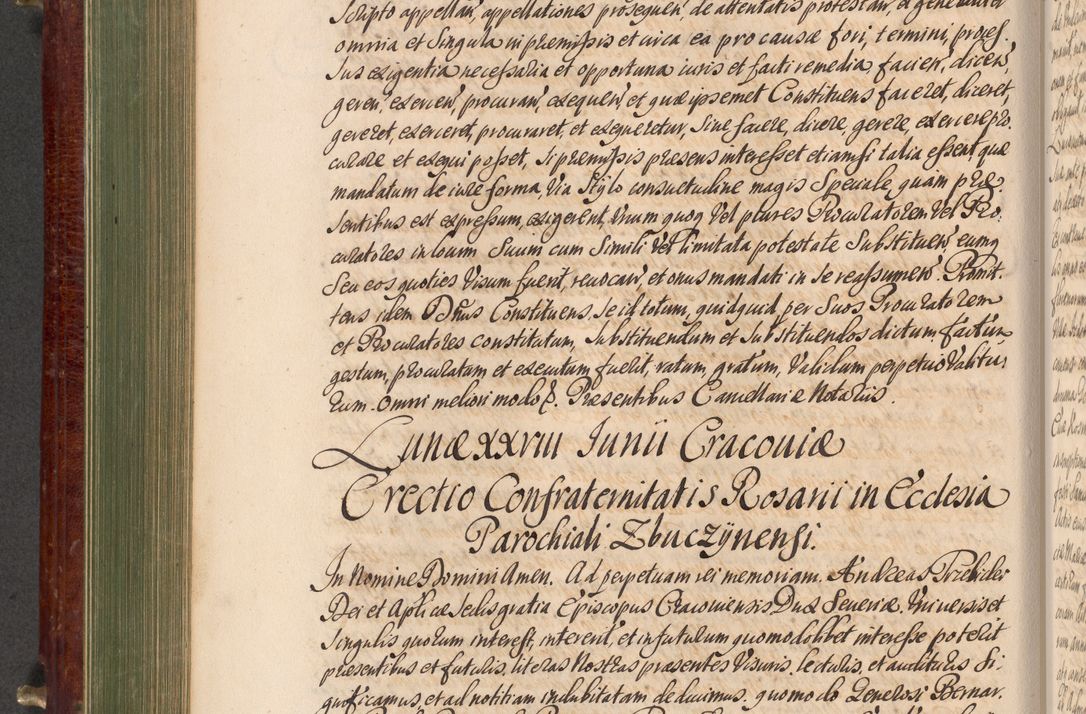 Scripto appellan', appellationes prosequen', de attentatis protestan', et generaliter
omnia et Singula in præmissis et circa ea pro causæ fori, termini, proces.
sus exigentia necessaria et opportuna iuris et facti remedia facien', dicen',
geren', exercen', procuran', exequen', et quæ ipsemet Constituens faceret, diceret,
gereret, exerceret, procuraret, et exequeretur, Sive facere, dicere, gerere, exercere pro.
curare et exequi posset, si præmissis præsens interesset etiamsi talia essent, quæ
mandatum de iure forma, Via Stylo consuetudine magis Speciale, quam præ.
sentibus est expressum, exigerent, Unum quoq Vel plures Procuratorem Vel Pro.
curatores in locum Suum cum Simili Vel limitata potestate Substituen', eumq
Seu eos quoties Visum fuerit, reuocan', et onus mandati in Se reassumen'. Promit.
tens idem Dnus Constituens, Se id totum, quidquid per Suos Procuratorem
et Procuratores constitutum, Substituendum et Substituendos dictum, factum
gestum, procuratum et executum fuerit, ratum, gratum, Validum perpetuo habitu
rum. Omni meliori modo. Præsentibus Cancellariæ Notariis.
Lunæ XXVIII Iunii Cracouiæ
Erectio Confraternitatis Rosarii in Ecclesia
Parochiali Zbuczÿnensi.
In Nomine Domini Amen. Ad perpetuam rei memoriam. Andreas Trzebicki
Dei et Aplicæ Sedis gratia Episcopus Cracouiensis Dux Seueriæ. Vniuersis et
Singulis quorum interest, intererit, et in futurum quomodolibet interesse poterit
præsentibus et futuris, literas Nostras præsentes Visuris, lecturis, et audituris Si.
gnificamus, et ad notitiam indubitatam deducimus. quomodo Generosi Bernar.